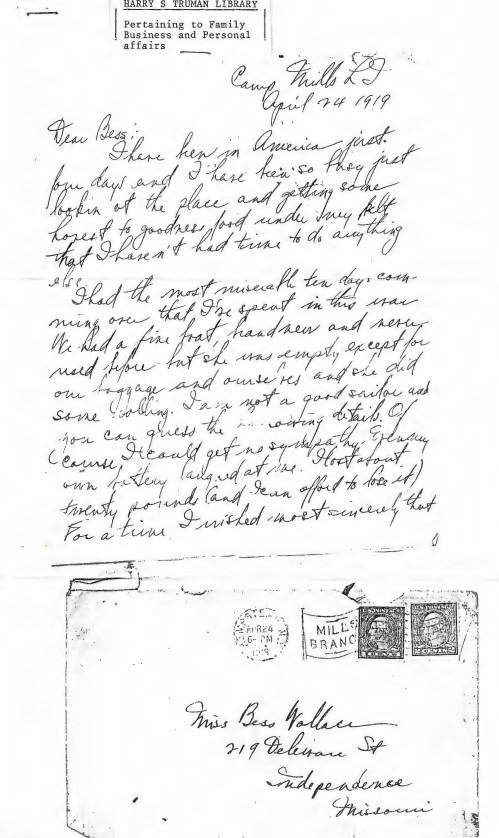 HARRY S TRUMAN LIBRARY
Pertaining to Family
Business and Personal
affairs
Camp Mills L I.
April 24 1919
Dear Bess:
I have been in America just
four days and I have been so busy just
lookin at the place and getting some
honest to goodness food under my belt
that I haven't had time to do anything
else
I had the most miserable ten days com-
ming over that I've spent in this war
We had a fine boat, brand new and never
used before but she was empty except for
our baggage and ourselves and she did
some rolling. I am not a good sailor and
you can guess the details. Of
(course, I could get no sympathy. Even my
own battery laughed at me. I lost about
twenty pounds (and I can afford to lose it)
For a time I wished most sincerely that
APR 24
6 PM
1919
MILLS
BRANC
Miss Bess Wallace
219 Deleware St
Independence
Missouri